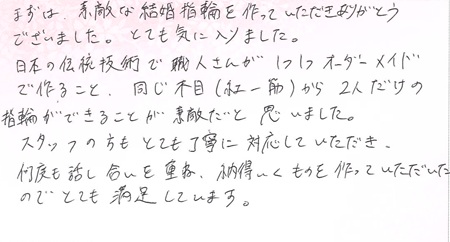 まずは、素敵な結婚指輪を作っていただきありがとう
ございました。とても気に入りました。
日本の伝統技術で職人さんが1つ1つオーダーメイド
で作ること、同じ木目(紅一筋)から2人だけの
指輪ができることが素敵だと思いました。
スタッフの方もとても丁寧に対応していただき、
何度も話し合いを重ね、納得いくものを作っていただいた
のでとても満足しています。